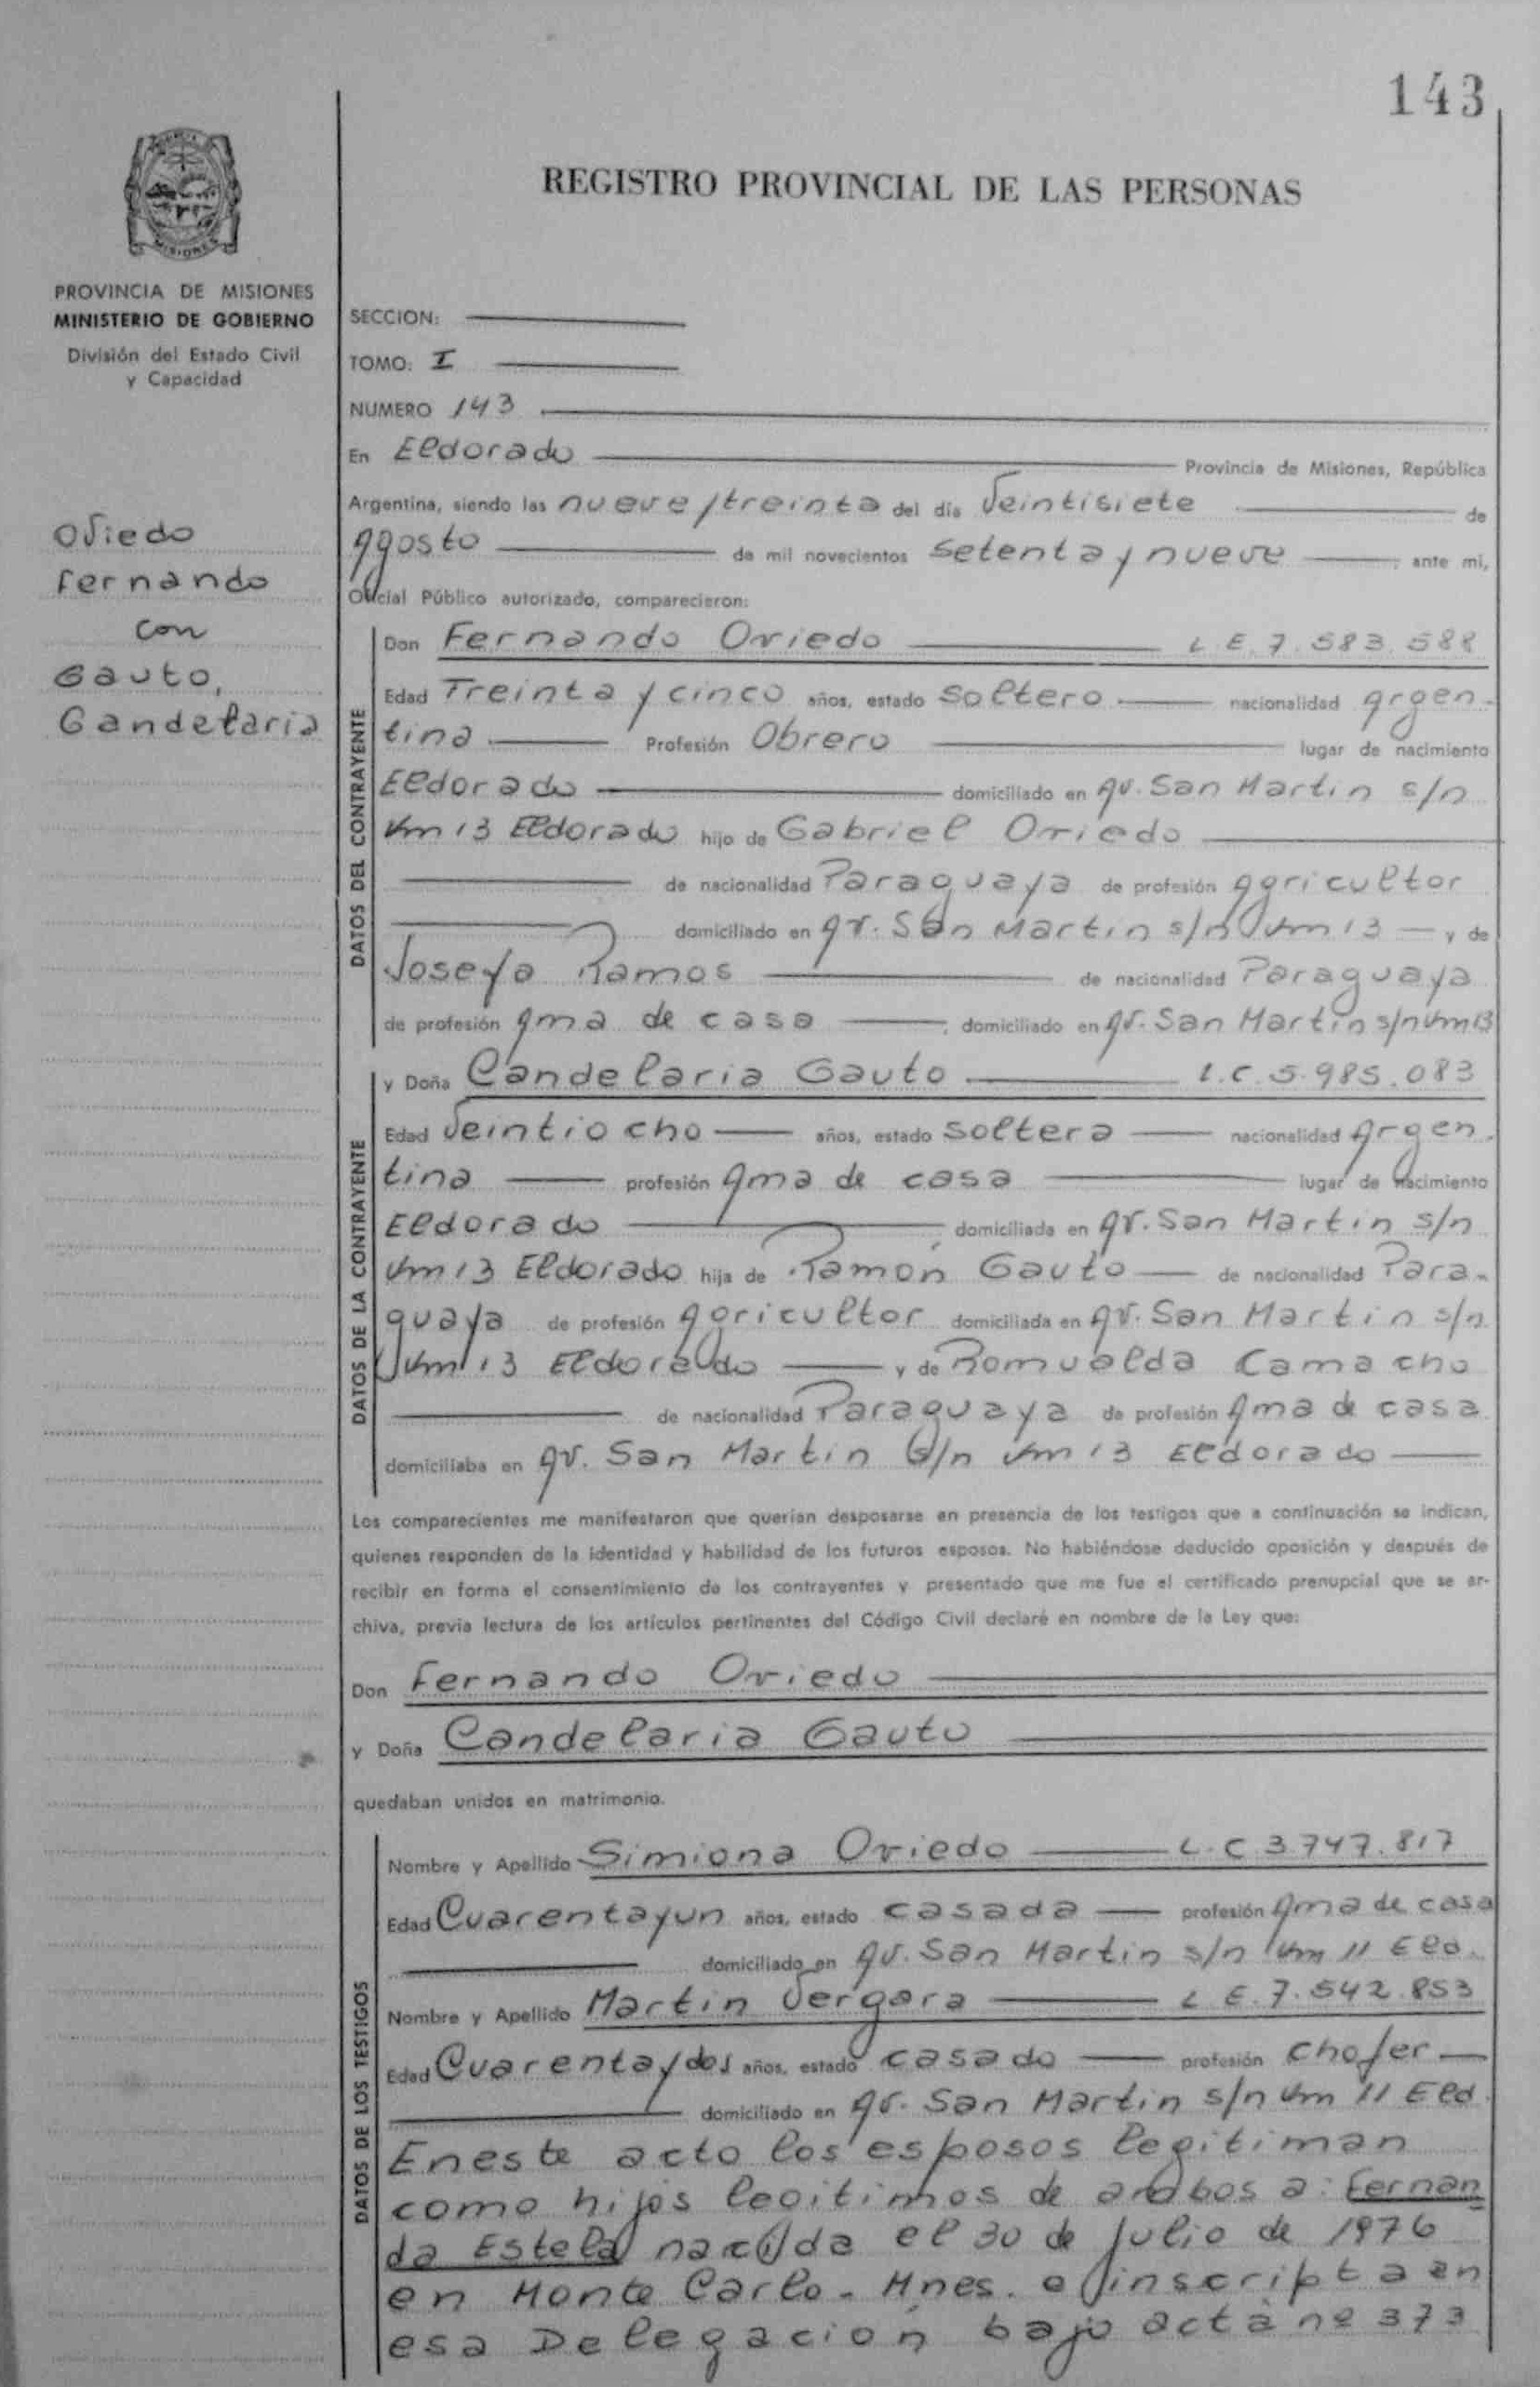 143
REGISTRO PROVINCIAL DE LAS PERSONAS
MISIONES
PROVINCIA DE MISIONES
MINISTERIO DE GOBIERNO
División del Estado Civil
y Capacidad
Oviedo
Fernando
con
Gauto,
Candelaria
SECCION:
TOMO: I
NUMERO 143
En Eldorado Provincia de Misiones, República
Argentina, siendo las nueve/treinta del día Veintisiete de
Agosto de mil novecientos setenta y nueve, ante mi,
Oficial Público autorizado, comparecieron:
DATOS DEL CONTRAYENTE
Don Fernando Oviedo L.E. 7.583.588
Edad Treinta y cinco años, estado soltero nacionalidad Argen-
tina Profesión Obrero lugar de nacimiento
Eldorado domiciliado en Av. San Martin s/n
Km 13 Eldorado hijo de Gabriel Oviedo
de nacionalidad Paraguaya de profesión Agricultor
domiciliado en Av. San Martin s/n Km 13 y de
Josefa Ramos de nacionalidad Paraguaya
de profesión Ama de casa, domiciliado en Av. San Martin s/n Km 13
DATOS DE LA CONTRAYENTE
y Doña Candelaria Gauto L.C. 5.985.083
Edad Veintiocho años, estado soltera nacionalidad Argen-
tina profesión Ama de casa lugar de nacimiento
Eldorado, domiciliada en Av. San Martin s/n
Km 13 Eldorado hija de Ramón Gauto de nacionalidad Para-
guaya de profesión Agricultor domiciliada en Av. San Martin s/n
Km 13 Eldorado y de Romualda Camacho
de nacionalidad Paraguaya de profesión Ama de casa
domiciliaba en Av. San Martin s/n Km 13 Eldorado
Los comparecientes me manifestaron que querían desposarse en presencia de los testigos que a continuación se indican,
quienes responden de la identidad y habilidad de los futuros esposos. No habiéndose deducido oposición y después de
recibir en forma el consentimiento de los contrayentes y presentado que me fue el certificado prenupcial que se ar-
chiva, previa lectura de los artículos pertinentes del Código Civil declaré en nombre de la Ley que:
Don Fernando Oviedo
y Doña Candelaria Gauto
quedaban unidos en matrimonio.
DATOS DE LOS TESTIGOS
Nombre y Apellido Simiona Oviedo L.C 3.747.817
Edad Cuarentayun años, estado casada profesión Ama de casa
domiciliado en Av. San Martin s/n Km 11 Eld.
Nombre y Apellido Martin Vergara L.E. 7.542.853
Edad Cuarentaydos años, estado casado profesión chofer
domiciliado en Av. San Martin s/n Km 11 Eld.
Eneste acto los esposos legitiman
como hijos legitimos de ambos a: Fernan
da Estela nacida el 30 de Julio de 1976
en Monte Carlo - Mnes. inscripta en
esa Delegación bajo acta nº 373